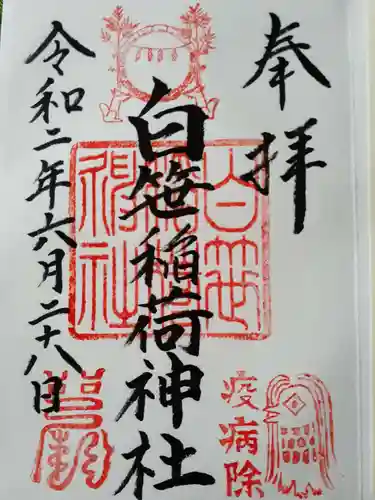 奉拝
白笹稲荷神社
令和二年六月二十八日
白笹
稲荷
神社
疫病除